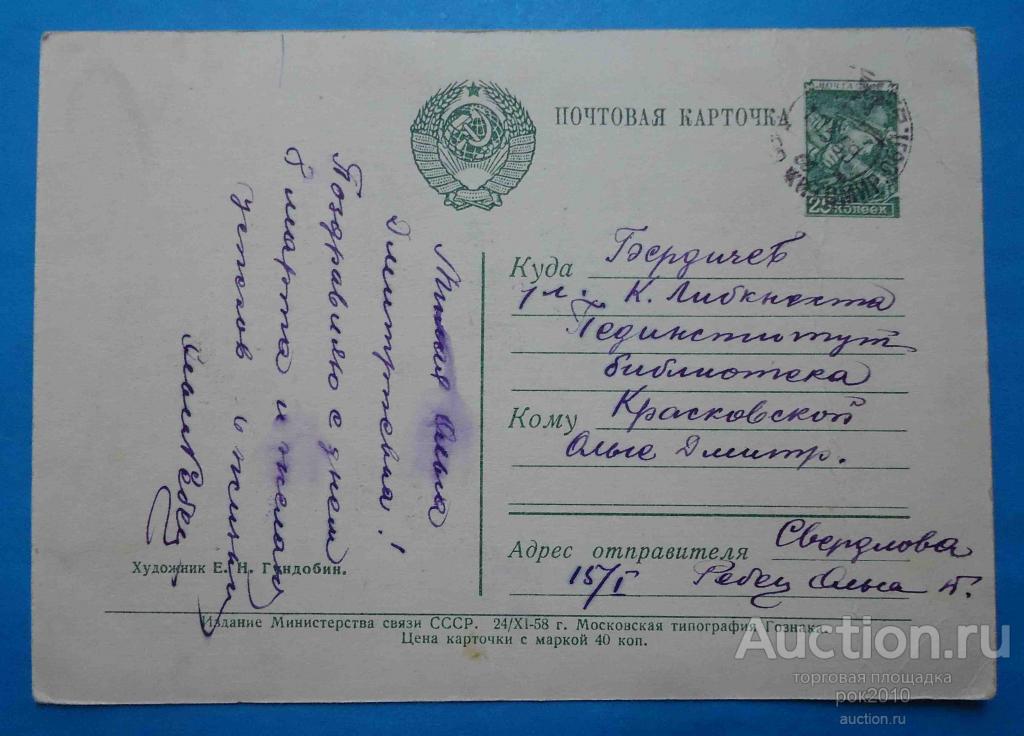 ПОЧТОВАЯ КАРТОЧКА
ПОЧТА
25 копеек
Милая Ольга
Дмитриевна!
Поздравляю с днем
8 марта и желаю
успехов в жизни
Ребец
Куда Бердичев
ул. К. Либкнехта
Пединститут
библиотека
Кому Красковской
Ольге Дмитр.
Адрес отправителя Свердлова
15/I Ребец Ольга Г.
Художник Е. Н. Гундобин.
Издание Министерства связи СССР. 24/XI-58 г. Московская типография Гознака.
Цена карточки с маркой 40 коп.
Auction.ru
торговая площадка
рок2010
auction.ru